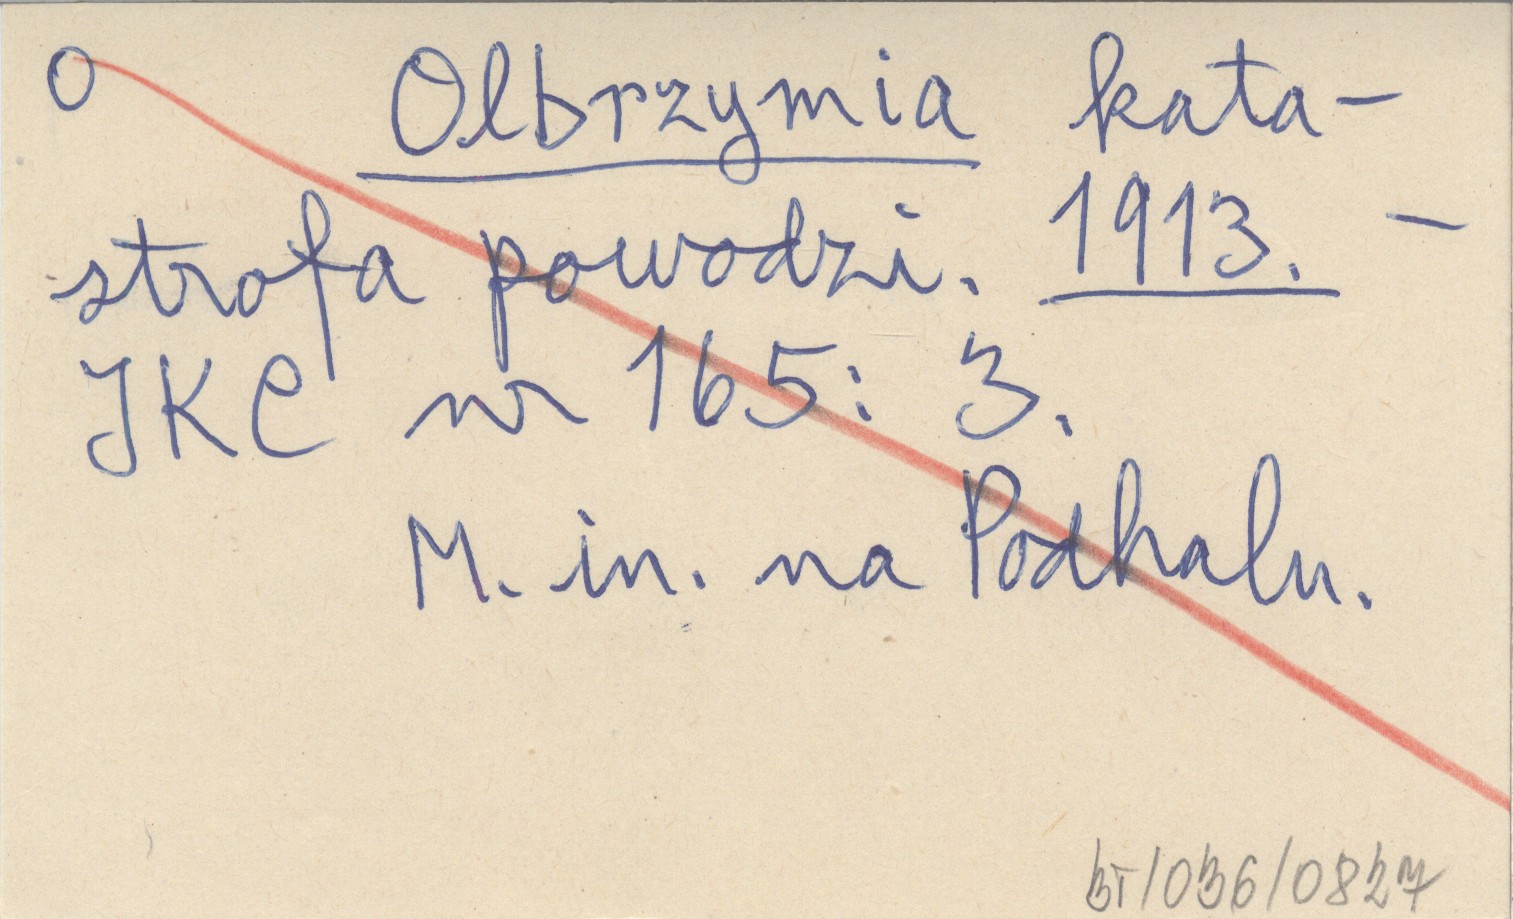 O Olbrzymia kata-
strofa powodzi. 1913. -
IKC nr 165: 3.
M. in. na Podhalu.
BT/036/0827